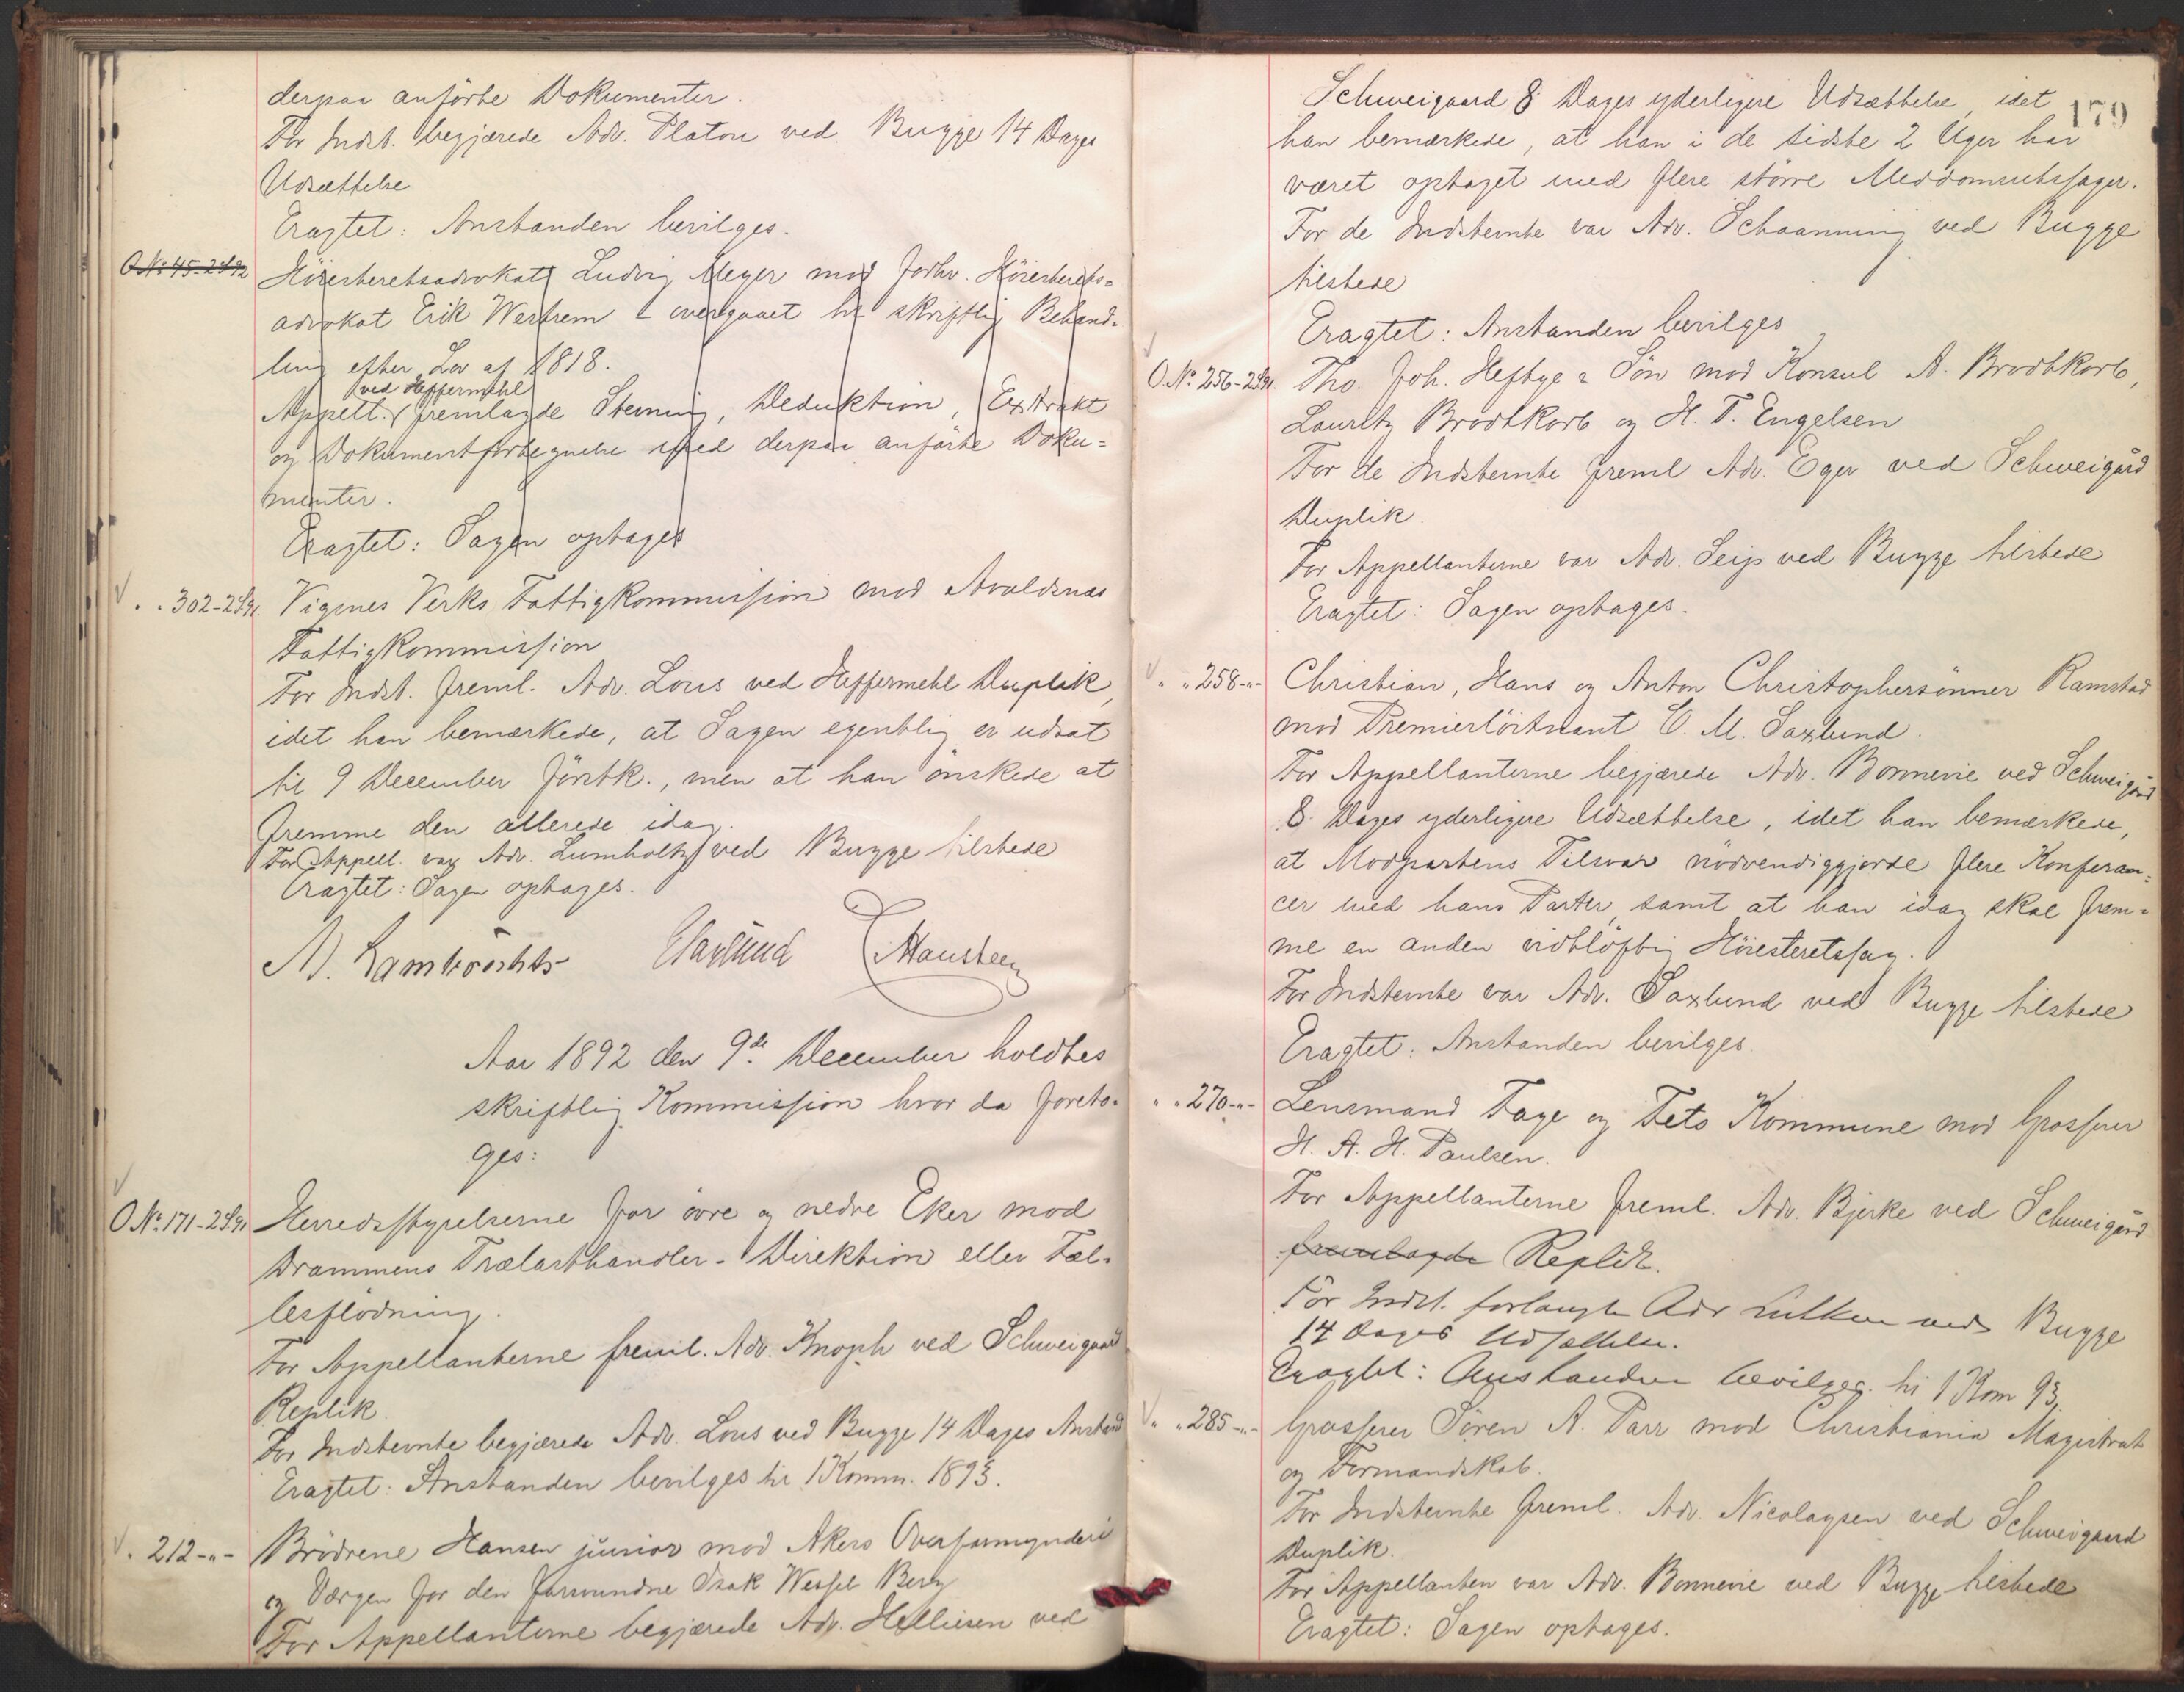 derpaa anförte Dokumenter.
For Indst. begjærede Adv. Platou ved Bugge 14 Dages
Udsættelse
Eragtet: Anstanden bevilges.
O.No 45-2S92 Höiesteretsadvokat Ludvig Meyer mod forhv. Höiesterets=
advokat Erik Werkrem - overgaaet til skriftlig Behand-
ling efter Lov af 1818.
ved Heffermehl
Appell. fremlagde Stevning, Deduktion, Extrakt
og Dokumentfortegnelse med derpaa anförte Doku=
menter.
Eragtet: Sagen optages
" " 302-2S91. Vigsnes Verks Fattigkommission mod Avaldsnæs
Fattigkommission
For Indst. freml. Adv. Lous ved Heffermehl Duplik,
idet han bemærkede, at Sagen egentlig er udsat
til 9 December förstk., men at han önskede at
fremme den allerede idag.
For Appell. var Adv. Lumholtz ved Bugge tilstede
Eragtet: Sagen optages.
Aar 1892 den 9de December holdtes
skriftlig Kommission hvor da foreto-
ges:
O.No 171-2S91 Herredsstyrelserne for övre og nedre Eker mod
Drammens Trælasthandler-Direktion eller Fæl-
lesflödning.
For Appellanterne freml. Adv. Knoph ved Schweigaard
Replik
For Indstevnte begjærede Adv. Lous ved Bugge 14 Dages Anstand
Eragtet: Anstanden bevilges til 1 Komm. 1893.
" 212-"- Brödrene Hansen junior mod Akers Overformynderi
og Værgen for den forsvundne Isak Wessel Berg
For Appellanterne begjærede Adv. Helliesen ved
179
Schweigaard 8 Dages yderligere Udsættelse, idet
han bemærkede, at han i de sidste 2 Uger har
været optaget med flere större Meddomsretssager.
For de Indstevnte var Adv. Schaanning ved Bugge
tilstede
Eragtet: Anstanden bevilges
O.No 256-2S91. Tho. Joh. Heftye & Sön mod Konsul A. Brodtkorb,
Lauritz Brodtkorb og H. T. Engelsen
For de Indstevnte freml Adv. Eger ved Schweigård
Duplik.
For Appellanterne var Adv. Seip ved Bugge tilstede
Eragtet: Sagen optages.
" " 258-"- Christian, Hans og Anton Christophersönner Ramstad
mod Premierlöitnant O. M. Saxlund.
For Appellanterne begjærede Adv. Bonnevie ved Schweigård
8 Dages yderligere Udsættelse, idet han bemærkede,
at Modpartens Tilsvar nödvendiggjorde flere Konferan=
cer med hans Parter, samt at han idag skal frem=
me en anden vidtlöftig Höiesteretssag.
For Indstevnte var Adv. Saxlund ved Bugge tilstede
Eragtet: Anstanden bevilges.
" " 270-"- Lensmand Fage og Fets Kommune mod Grosserer
H. A. H. Paulsen.
For Appellanterne freml. Adv. Bjerke ved Schweigård
fremlagde Replik.
For Indst. forlangte Adv Lütken ved Bugge
14 dages Udsættelse.
Eragtet: Anstanden bevilges til 1 Kom 93.
" " 285-"- Grosserer Sören A. Parr mod Christiania Magistrat
og Formandskab.
For Indstevnte freml. Adv. Nicolaysen ved Schweigaard
Duplik.
For Appellanten var Adv. Bonnevie ved Bugge tilstede
Eragtet: Sagen optages.